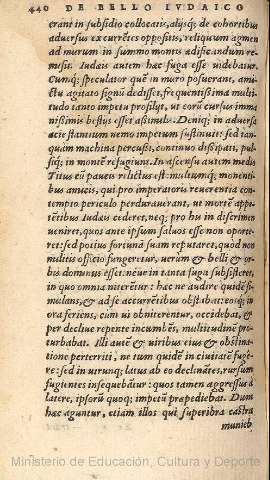 440 DE BELLO IVDAICO
erant in subsidio collocatis, alijsq; de cohortibus
aduersus excurrẽtes oppositis, reliquum agmen
ad murum in summo montis ædificandum re-
misit. Iudæis autem hæc fuga esse uidebatur.
Cumq́; speculator quẽ in muro posuerant, ami-
ctu agitato signũ dedisset, frequentißima multi-
tudo tanto impetu prosilijt, ut eorũ cursus imma
nißimis bestijs esset aßimilis. Deniq; in aduersa
acie stantium nemo impetum sustinuit: sed tan-
quam machina percußi, continuo dißipati, pul-
siq́; in montẽ refugiunt. In ascensu autem medio
Titus cũ paucis relictus est: multumq́; monenti-
bus amicis, qui pro imperatoris reuerentia con-
tempto periculo perdurauerant, ut mortẽ appe-
tẽtibus Iudæis cederet, neq; pro his in discrimen
ueniret, quos ante ipsum saluos esse non oporte-
ret: sed potius fortunã suam reputaret, quòd non
militis officio fungeretur, uerũm & belli & or-
bis dominus esset: néue in tanta fuga subsisteret,
in quo omnia niterẽtur: hæc ne audire quidẽ si-
mulans, & ad se accurrẽtibus obstabat: eosq́; in
ora feriens, cum ui obniterentur, occidebat, &
per decliue repente incumbẽs, multitudinẽ pro-
turbabat. Illi autẽ & uiribus eius & obstina-
tione perterriti, ne tum quidẽ in ciuitatẽ fuge-
re: sed in utrunq; latus ab eo declinãtes, rursum
fugientes insequebãtur: quos tamen aggressus à
latere, ipsorũ quoq; impetũ præpediebat. Dum
hæc aguntur, etiam illos qui superiora castra
munieb
Ministerio de Educación, Cultura y Deporte